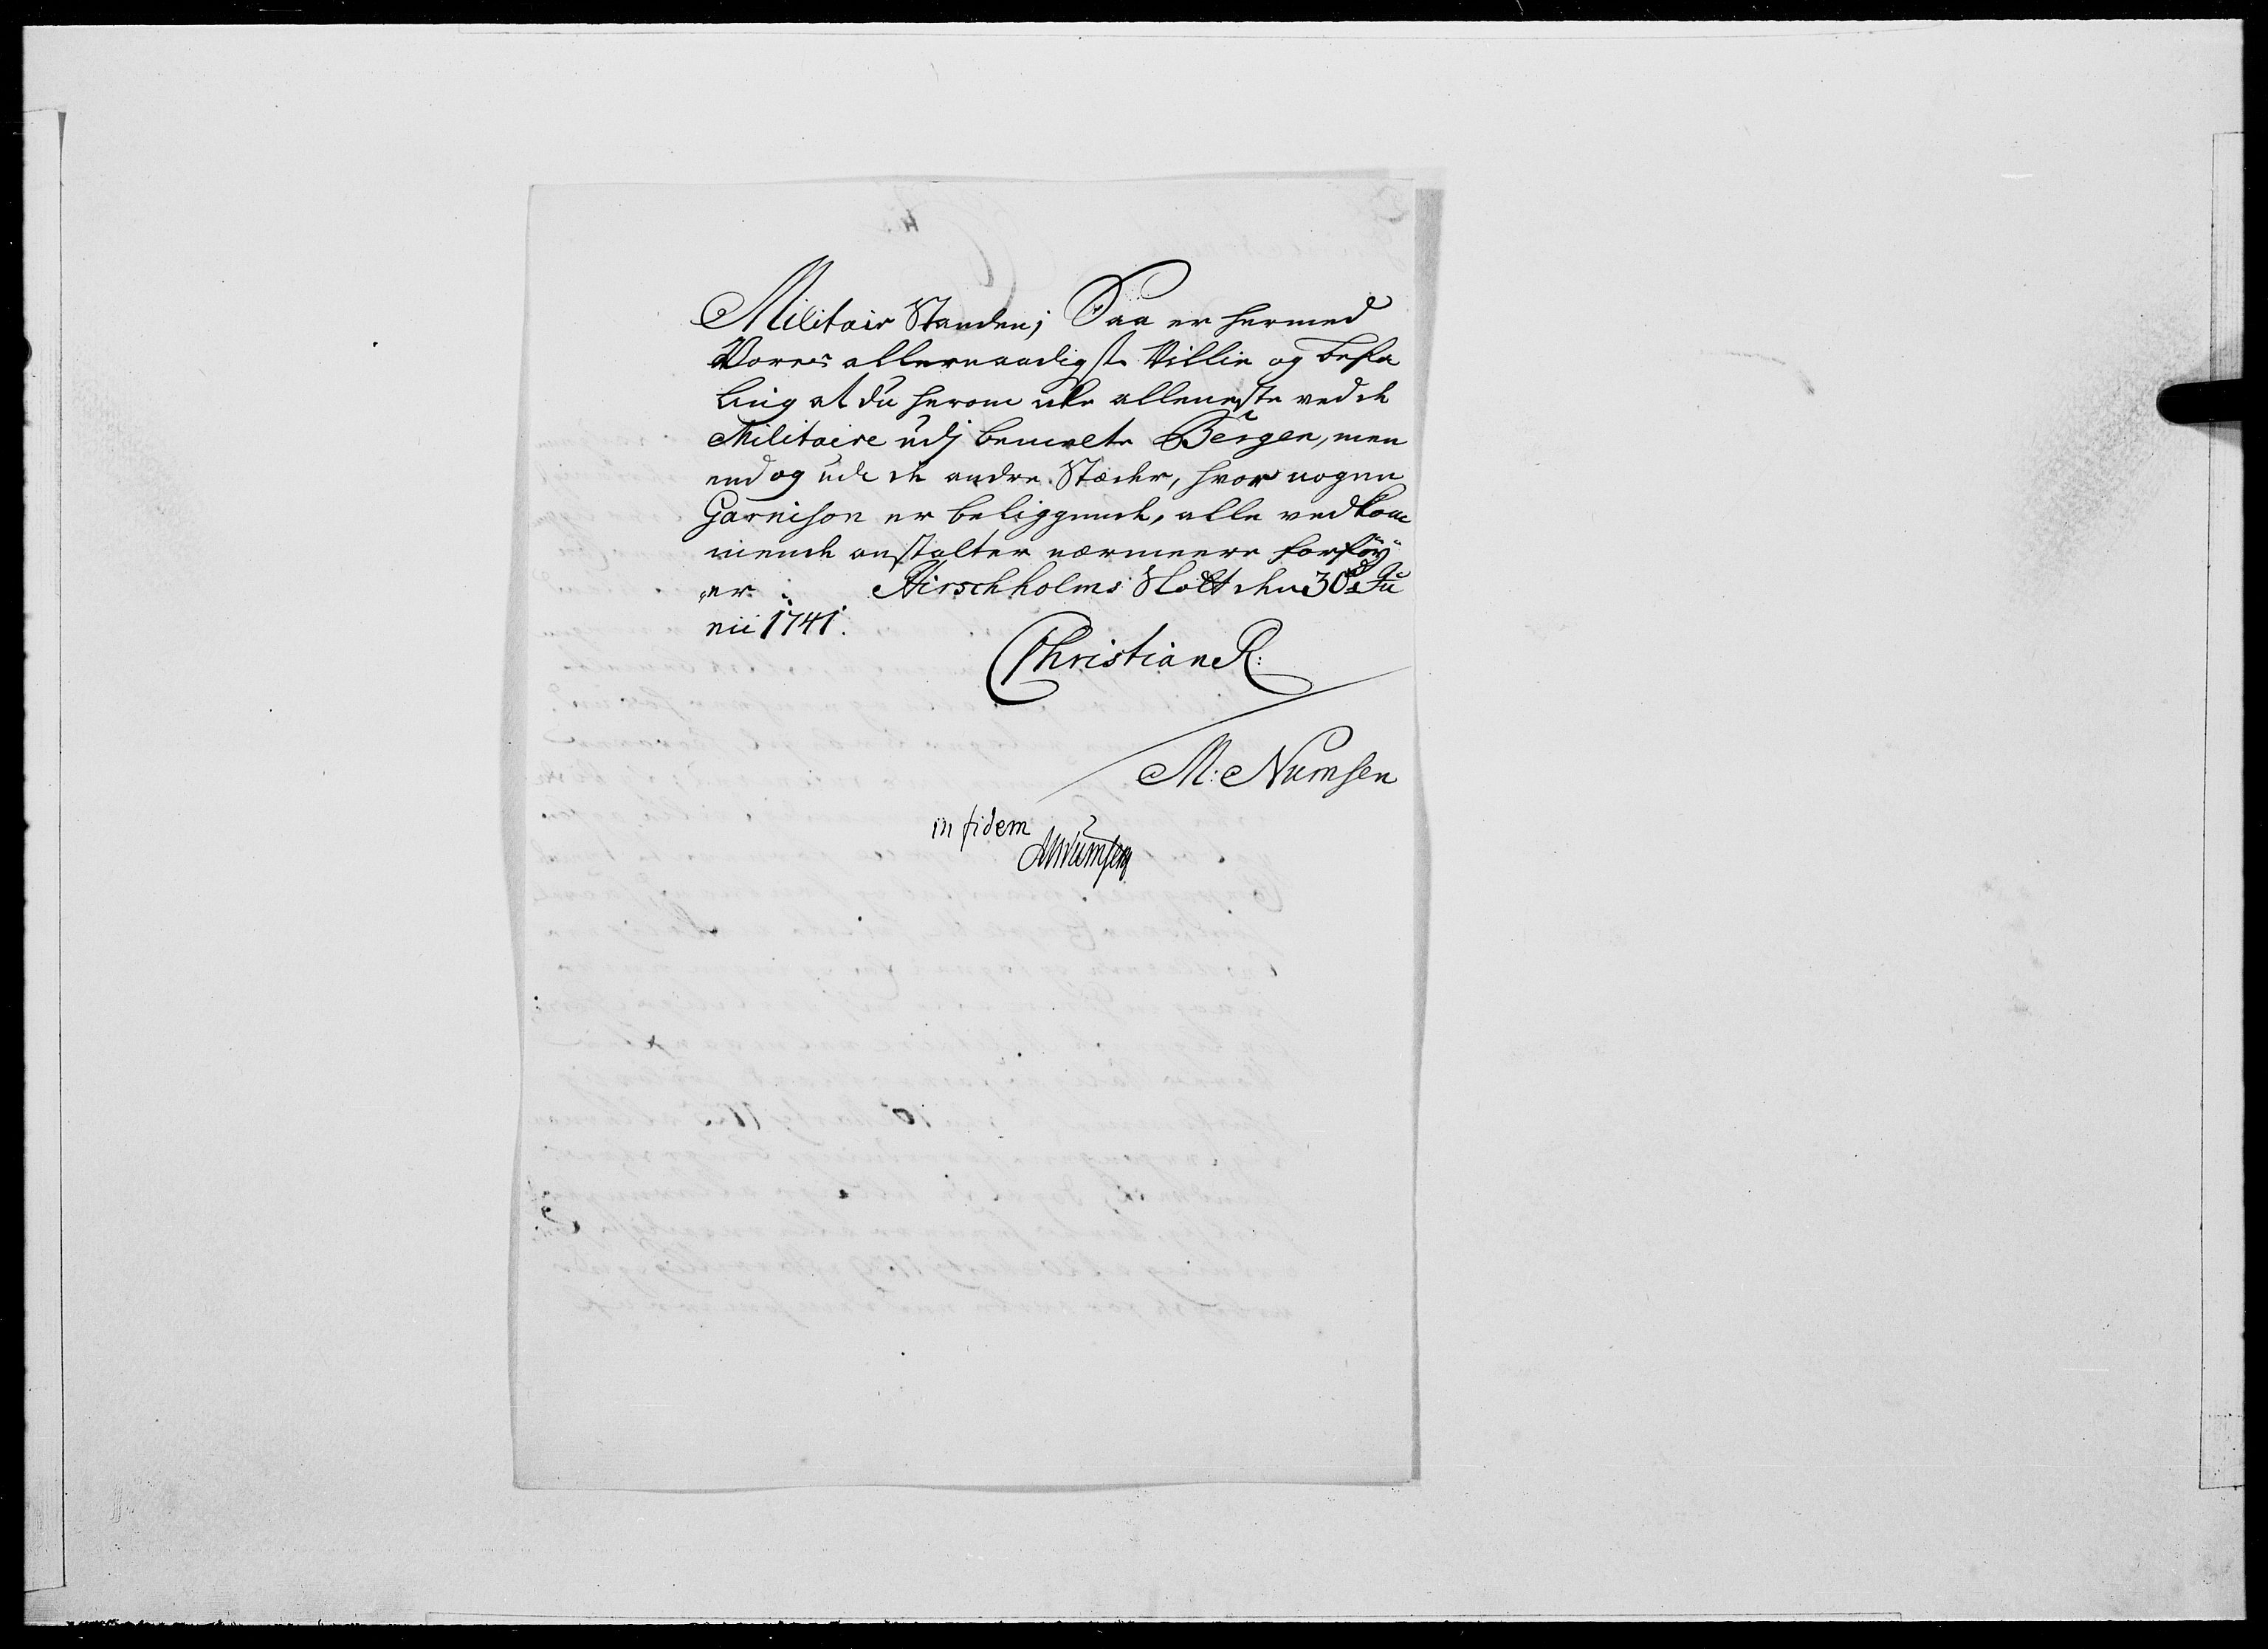 Militair Standen; Saa er hermed
Vores allernaadigste Villie og Befa
ling at du herom ikke alleneste ved de
Militaire udj bemelte Bergen, men
end og ude de andre Stæder, hvor nogen
Garnison er beliggende, alle vedkom
mende anstalter nærmere forføy
er. Hirschholms Slott den 30te Ju
nii 1741.
Christian R:
M: Numsen
in fidem
MNumsen